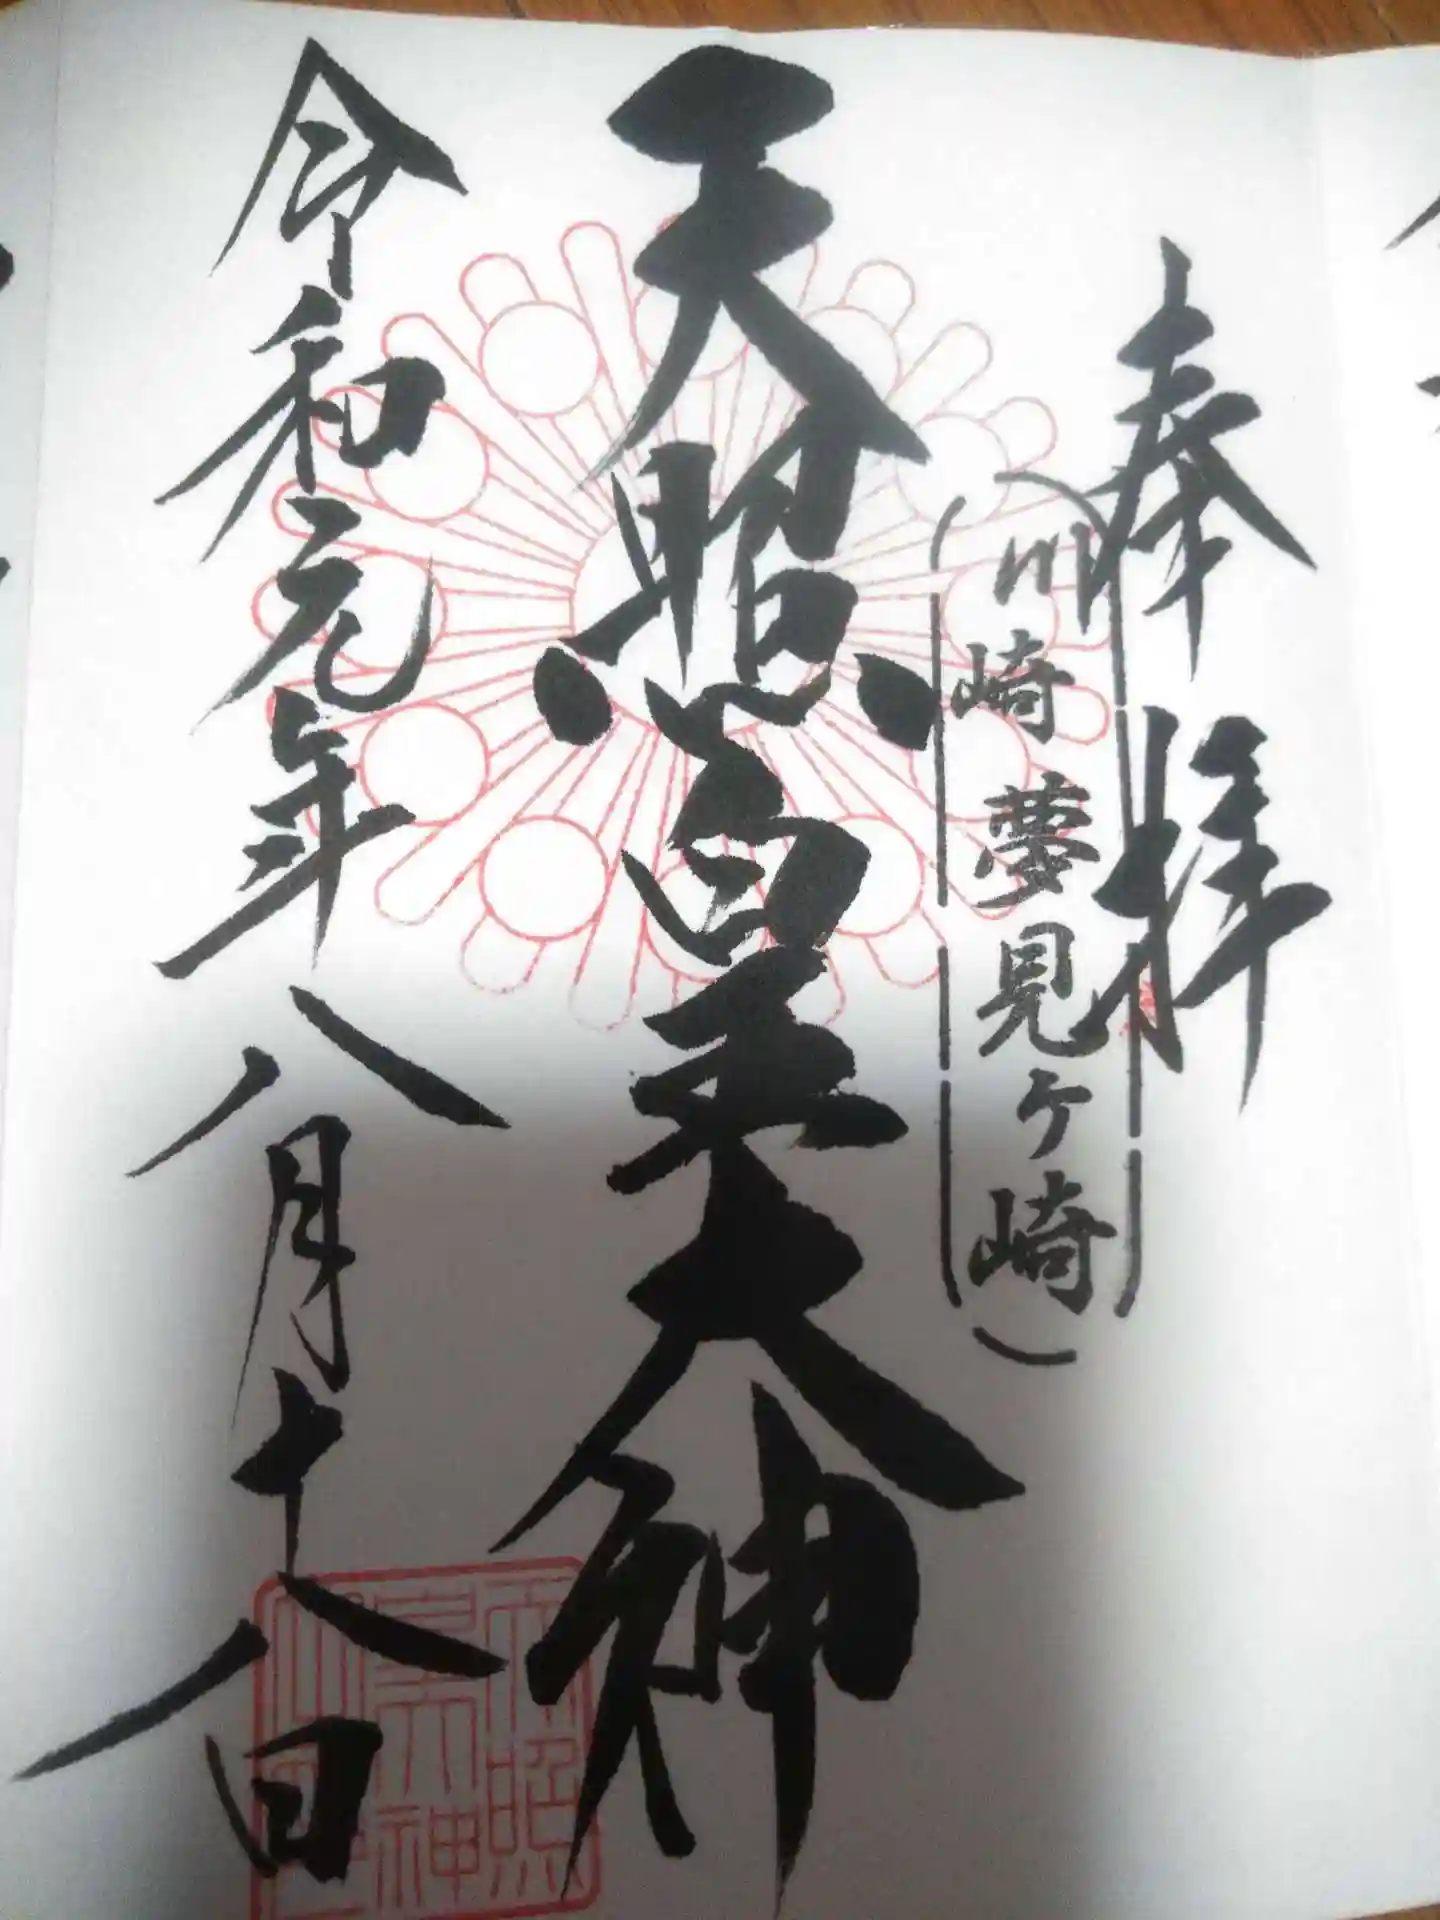 奉拝
川崎 夢見ヶ崎
天照皇大神
令和元年八月十八日